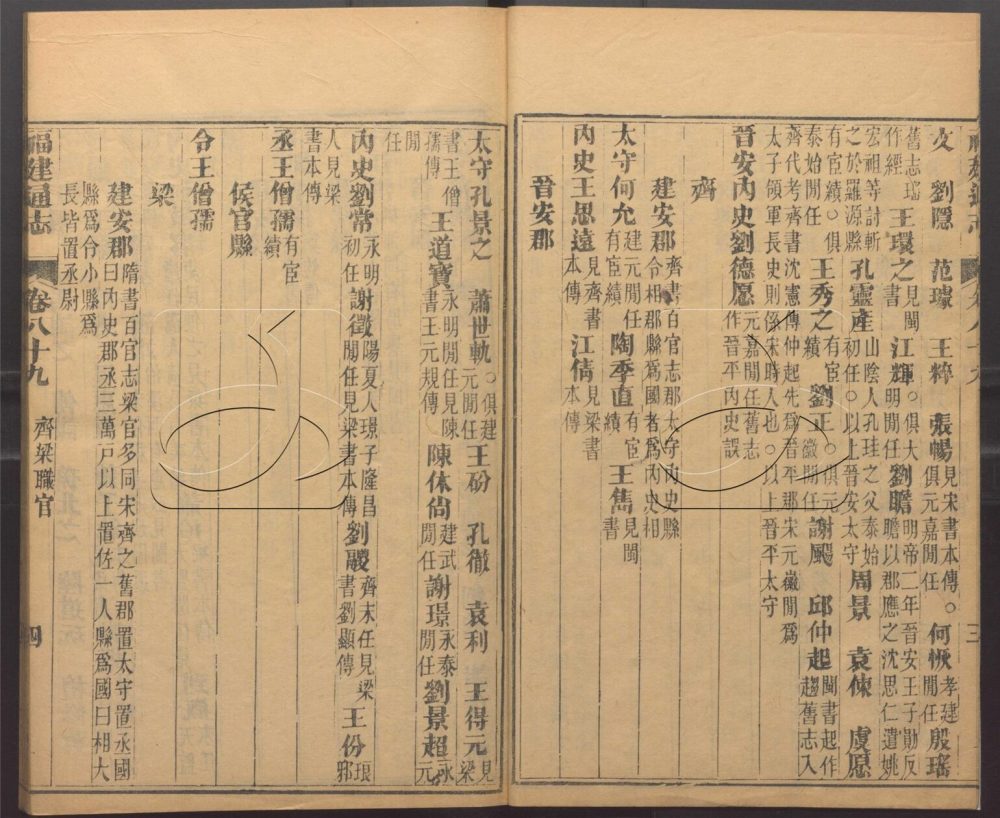 文　劉隱　范瓛　王粹　張暢見宋書本傳。俱元嘉間任何恢孝建間任殷瑤
舊志瑤作經王環之見閩書江輝。俱大明間任劉瞻明帝二年晉安王子勛反瞻以郡應之沈思仁遣姚
宏祖等討斬之於羅源縣孔靈產山陰人孔珪之父泰始初任。以上晉安太守周景　袁悚　虞愿
有宦績。俱泰始間任王秀之有宦績劉正。俱元徽間任謝颺　邱仲起閩書起作趨舊志入
齊代考齊書沈憲傳仲起先為晉平郡宋元徽間為太子領軍長史則係宋時人也。以上晉平太守
晉安內史劉德愿元嘉間任舊志作晉平內史誤
齊
建安郡齊書百官志郡太守內史縣令相郡縣為國者為內史相
太守何允建元間任有宦績陶季直有宦績王雋見閩書
內史王思遠見齊書本傳江倩見梁書本傳
晉安郡
太守孔景之　蕭世軌。俱建元間任王份　孔徹　袁利　王得元見梁
書王僧孺傳王道寶永明間任見陳書王元規傳陳休尚建武間任謝璟永泰間任劉景超永元
間任
內史劉常永明初任謝徵陽夏人璟子隆昌間任見梁書本傳劉鬷齊末任見梁書劉顯傳王份琅邪
人見梁書本傳
丞王僧孺有宦績
侯官縣
令王僧孺
梁
建安郡隋書百官志梁官多同宋齊之舊郡置太守置丞國曰內史郡丞三萬戶以上置佐一人縣為國曰相大
縣為令小縣為長皆置丞尉
福建通志　卷八十九　齊梁職官　四